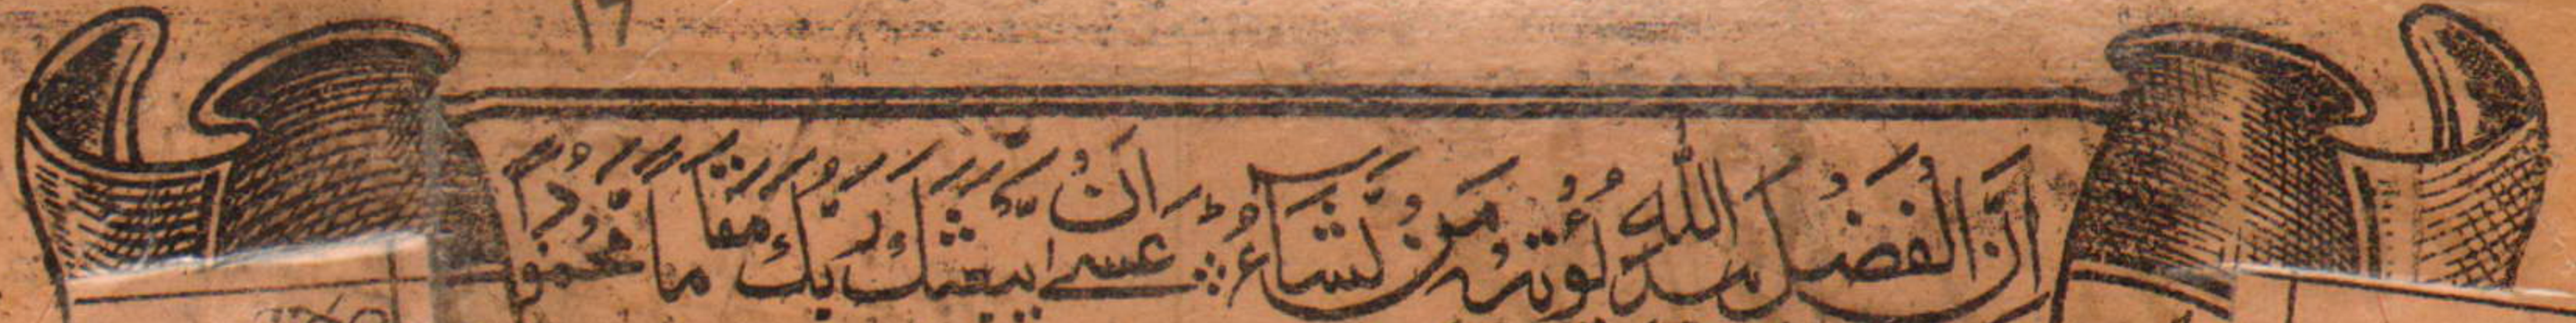 ۱۶
اِنَّ الْفَضْلَ بِيَدِ اللّٰهِ يُؤْتِيْهِ مَنْ يَّشَآءُ ؕ عَسٰۤى اَنْ يَّبْعَثَكَ رَبُّكَ مَقَامًا مَّحْمُوْدًا